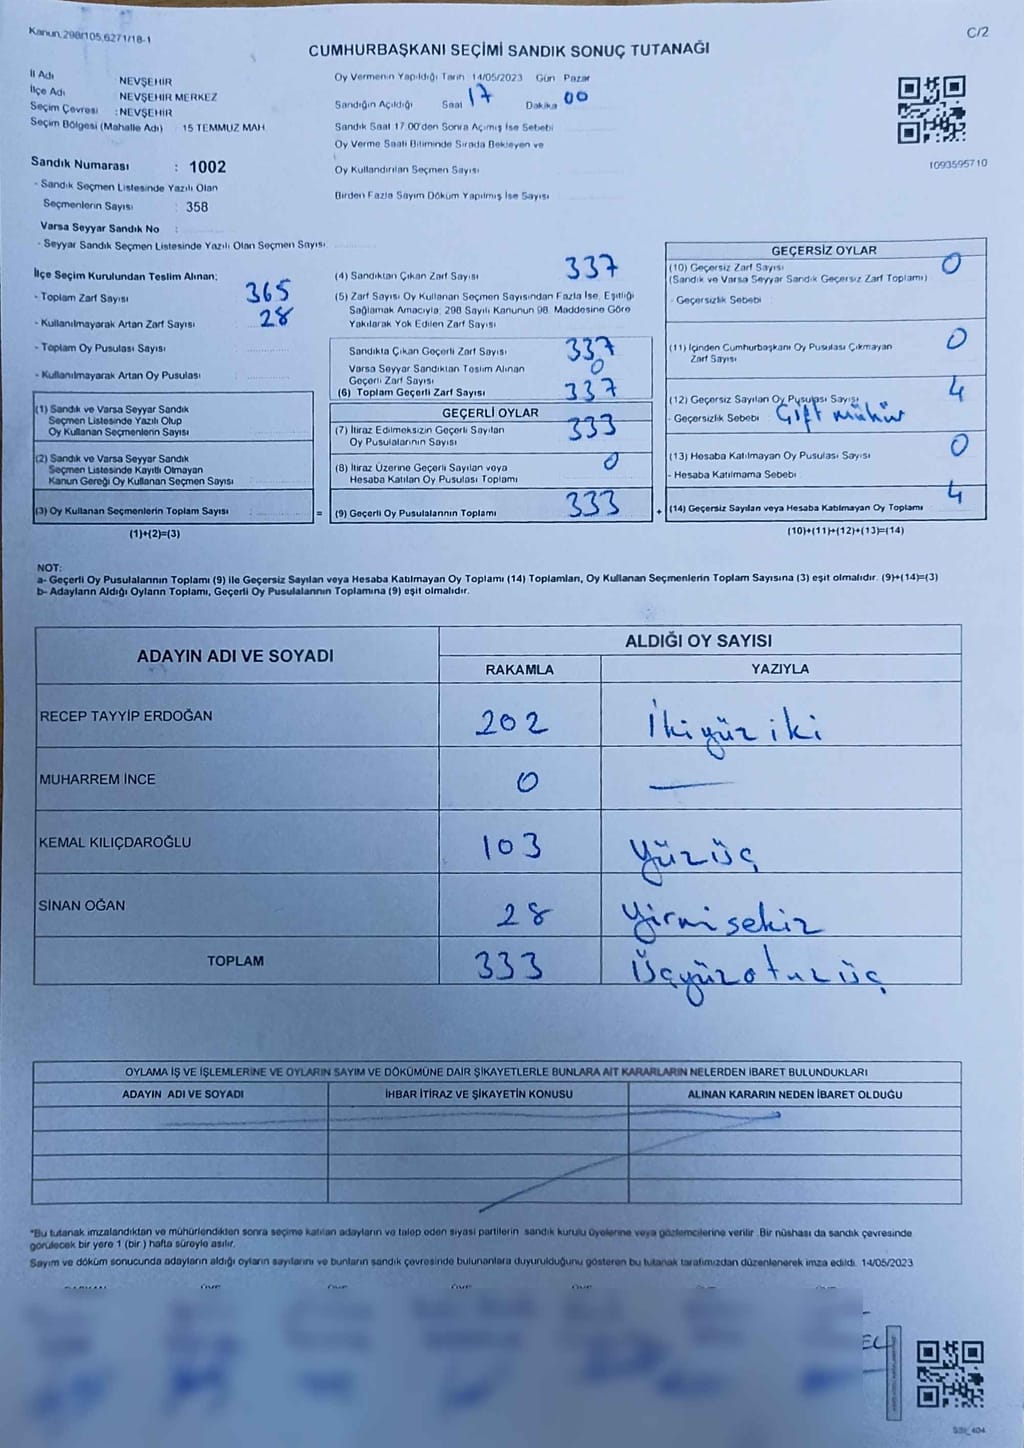 Kanun,298/105,6271/18-1
C/2
CUMHURBAŞKANI SEÇİMİ SANDIK SONUÇ TUTANAĞI
İl Adı NEVŞEHİR
İlçe Adı NEVŞEHİR MERKEZ
Seçim Çevresi : NEVŞEHİR
Seçim Bölgesi (Mahalle Adı) 15 TEMMUZ MAH.
Oy Vermenin Yapıldığı Tarih 14/05/2023 Gün Pazar
Sandığın Açıldığı Saat 17 Dakika 00
Sandık Saat 17.00'den Sonra Açımış İse Sebebi
Oy Verme Saati Bitiminde Sırada Bekleyen ve
Oy Kullandırılan Seçmen Sayısı
Birden Fazla Sayım Döküm Yapılmış İse Sayısı
1093595710
Sandık Numarası : 1002
- Sandık Seçmen Listesinde Yazılı Olan
Seçmenlerin Sayısı : 358
Varsa Seyyar Sandık No :
- Seyyar Sandık Seçmen Listesinde Yazılı Olan Seçmen Sayısı
İlçe Seçim Kurulundan Teslim Alınan;
- Toplam Zarf Sayısı 365
- Kullanılmayarak Artan Zarf Sayısı 28
- Toplam Oy Pusulası Sayısı
- Kullanılmayarak Artan Oy Pusulası
(1) Sandık ve Varsa Seyyar Sandık
Seçmen Listesinde Yazılı Olup
Oy Kullanan Seçmenlerin Sayısı
(2) Sandık ve Varsa Seyyar Sandık
Seçmen Listesinde Kayıtlı Olmayan
Kanun Gereği Oy Kullanan Seçmen Sayısı
(3) Oy Kullanan Seçmenlerin Toplam Sayısı =
(1)+(2)=(3)
(4) Sandıktan Çıkan Zarf Sayısı 337
(5) Zarf Sayısı Oy Kullanan Seçmen Sayısından Fazla İse, Eşitliği
Sağlamak Amacıyla; 298 Sayılı Kanunun 98. Maddesine Göre
Yakılarak Yok Edilen Zarf Sayısı
Sandıkta Çıkan Geçerli Zarf Sayısı 337
Varsa Seyyar Sandıktan Teslim Alınan
Geçerli Zarf Sayısı 0
(6) Toplam Geçerli Zarf Sayısı 337
GEÇERLİ OYLAR
(7) İtiraz Edilmeksizin Geçerli Sayılan
Oy Pusulalarının Sayısı 333
(8) İtiraz Üzerine Geçerli Sayılan veya
Hesaba Katılan Oy Pusulası Toplamı 0
(9) Geçerli Oy Pusulalarının Toplamı 333 +
GEÇERSİZ OYLAR
(10) Geçersiz Zarf Sayısı 0
(Sandık ve Varsa Seyyar Sandık Geçersiz Zarf Toplamı)
- Geçersizlik Sebebi
(11) İçinden Cumhurbaşkanı Oy Pusulası Çıkmayan 0
Zarf Sayısı
(12) Geçersiz Sayılan Oy Pusulası Sayısı 4
- Geçersizlik Sebebi Çift mühür
(13) Hesaba Katılmayan Oy Pusulası Sayısı 0
- Hesaba Katılmama Sebebi
(14) Geçersiz Sayılan veya Hesaba Katılmayan Oy Toplamı 4
(10)+(11)+(12)+(13)=(14)
NOT:
a- Geçerli Oy Pusulalarının Toplamı (9) ile Geçersiz Sayılan veya Hesaba Katılmayan Oy Toplamı (14) Toplamları, Oy Kullanan Seçmenlerin Toplam Sayısına (3) eşit olmalıdır. (9)+(14)=(3)
b- Adayların Aldığı Oyların Toplamı, Geçerli Oy Pusulalarının Toplamına (9) eşit olmalıdır.
ADAYIN ADI VE SOYADI
ALDIĞI OY SAYISI
RAKAMLA YAZIYLA
RECEP TAYYİP ERDOĞAN 202 İkiyüz iki
MUHARREM İNCE 0 —
KEMAL KILIÇDAROĞLU 103 yüzüç
SİNAN OĞAN 28 yirmisekiz
TOPLAM 333 üçyüzotuzüç
OYLAMA İŞ VE İŞLEMLERİNE VE OYLARIN SAYIM VE DÖKÜMÜNE DAİR ŞİKAYETLERLE BUNLARA AİT KARARLARIN NELERDEN İBARET BULUNDUKLARI
ADAYIN ADI VE SOYADI İHBAR İTİRAZ VE ŞİKAYETİN KONUSU ALINAN KARARIN NEDEN İBARET OLDUĞU
*Bu tutanak imzalandıktan ve mühürlendikten sonra seçime katılan adayların ve talep eden siyasi partilerin sandık kurulu üyelerine veya gözlemcilerine verilir. Bir nüshası da sandık çevresinde
görülecek bir yere 1 (bir) hafta süreyle asılır.
Sayım ve döküm sonucunda adayların aldığı oyların sayılarını ve bunların sandık çevresinde bulunanlara duyurulduğunu gösteren bu tutanak tarafımızdan düzenlenerek imza edildi. 14/05/2023